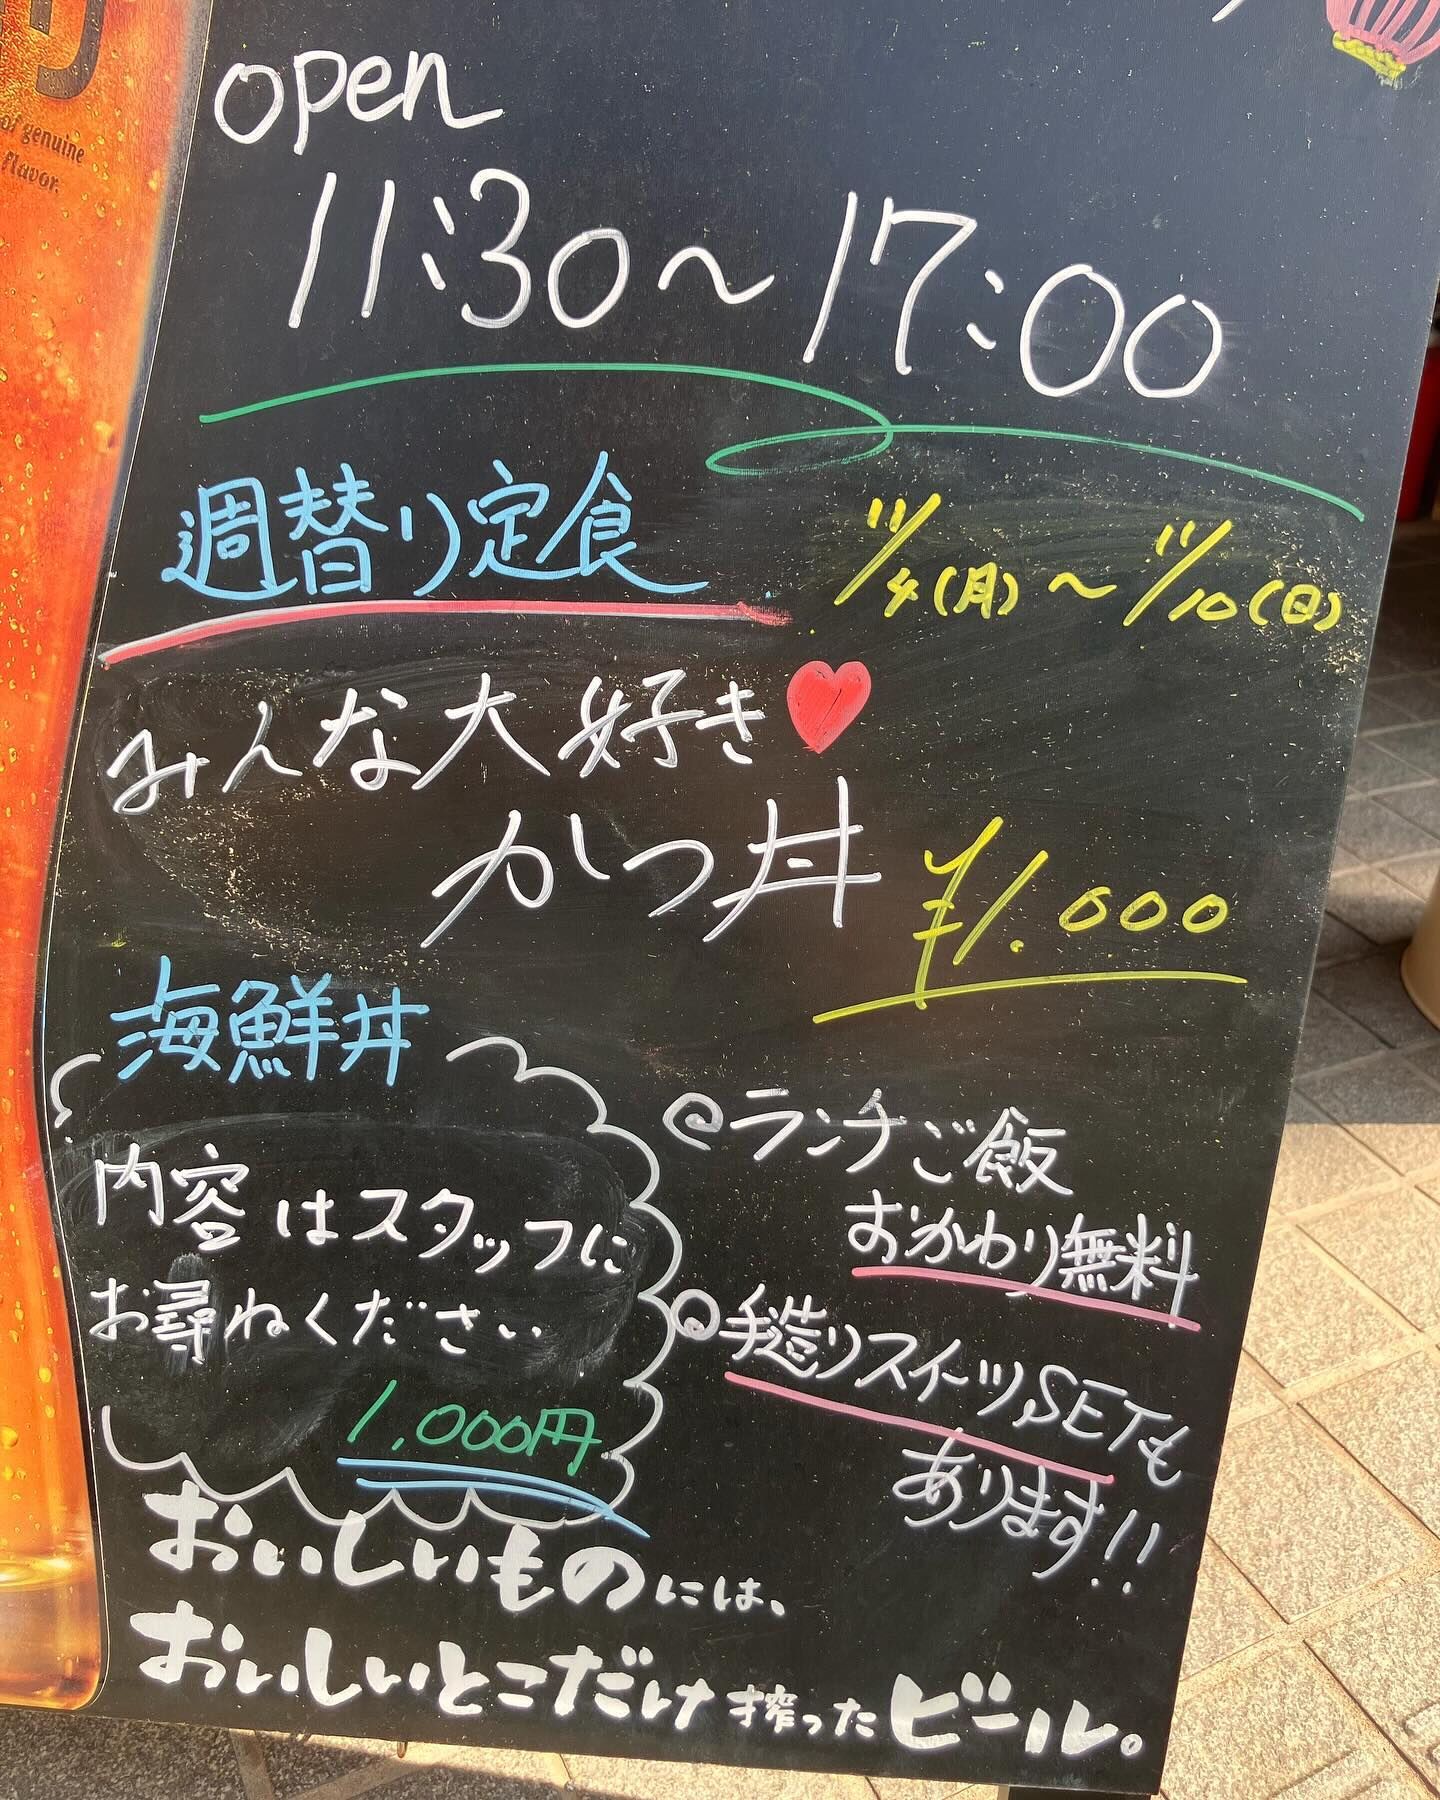 り
of genuine
flavor.
open
11:30〜17:00
週替り定食 11/4(月)〜11/10(日)
みんな大好き
かつ丼 ¥1.000
海鮮丼
内容はスタッフに
お尋ねください
1,000円
ランチご飯
おかわり無料
手造りスイーツSETも
あります!!
おいしいものには、
おいしいとこだけ搾ったビール。